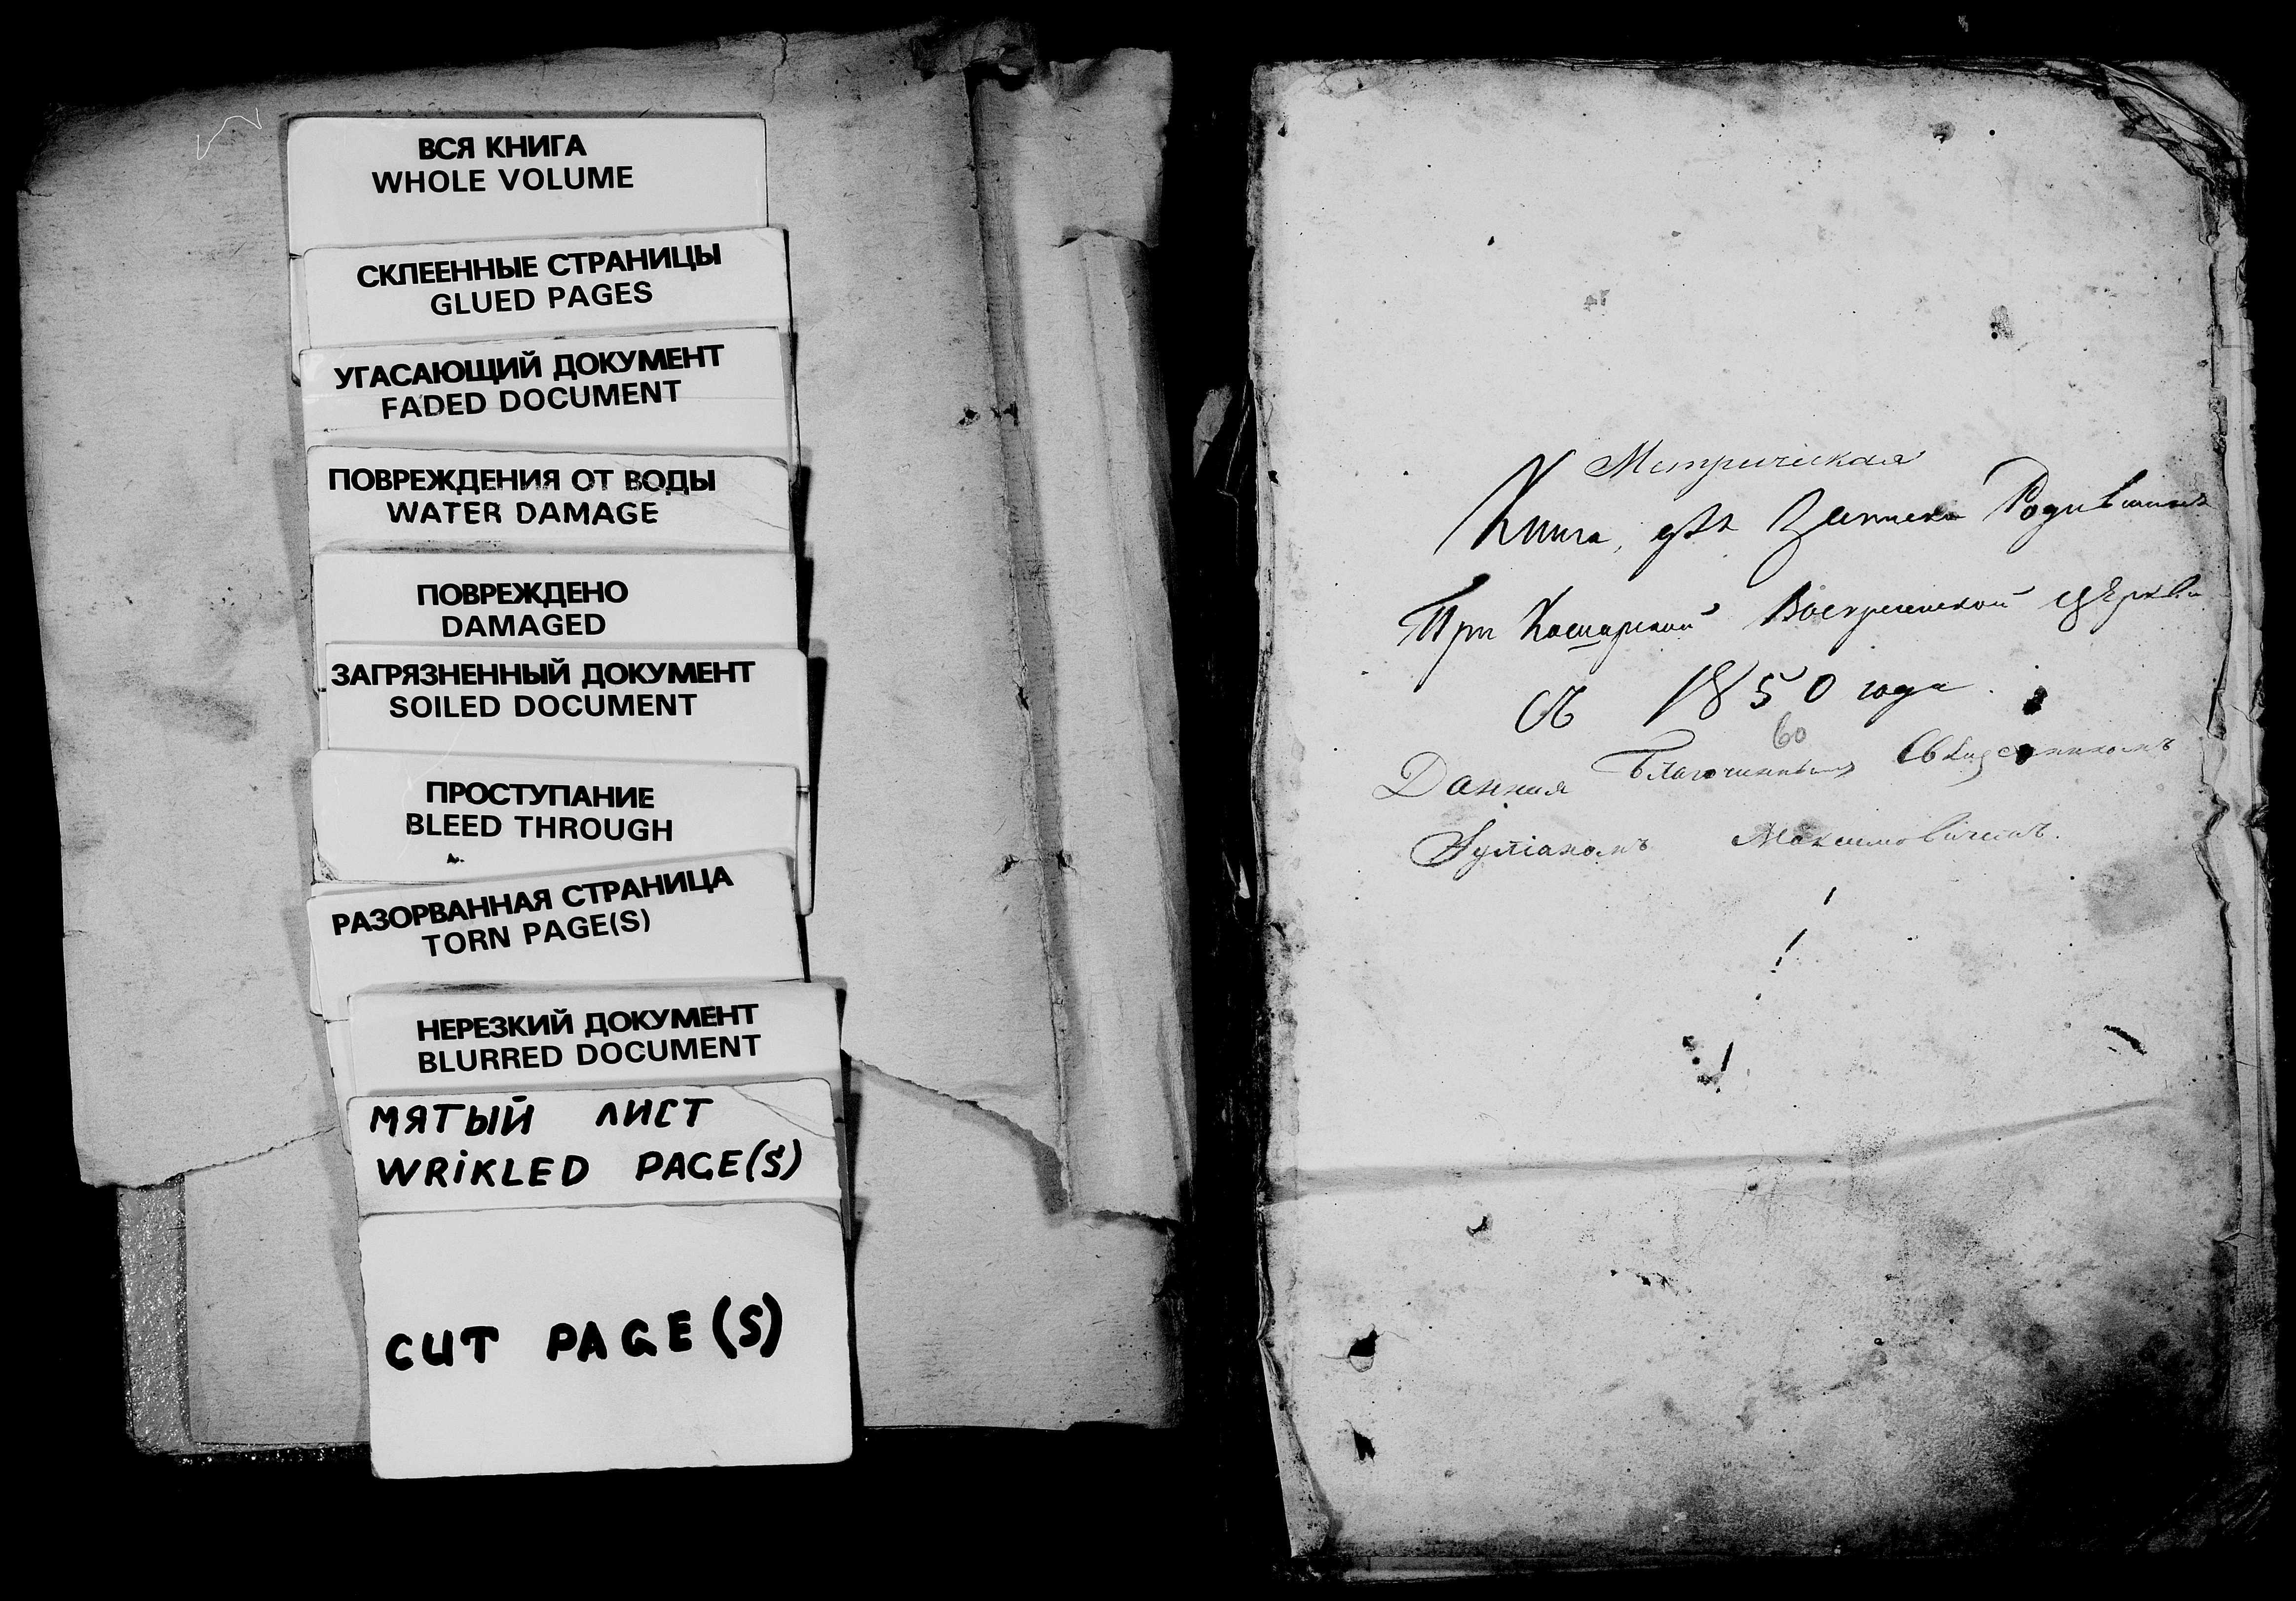 ВСЯ КНИГА
WHOLE VOLUME
СКЛЕЕННЫЕ СТРАНИЦЫ
GLUED PAGES
УГАСАЮЩИЙ ДОКУМЕНТ
FADED DOCUMENT
ПОВРЕЖДЕНИЯ ОТ ВОДЫ
WATER DAMAGE
ПОВРЕЖДЕНО
DAMAGED
ЗАГРЯЗНЕННЫЙ ДОКУМЕНТ
SOILED DOCUMENT
ПРОСТУПАНИЕ
BLEED THROUGH
РАЗОРВАННАЯ СТРАНИЦА
TORN PAGE(S)
НЕРЕЗКИЙ ДОКУМЕНТ
BLURRED DOCUMENT
МЯТЫЙ ЛИСТ
WRIKLED PAGE(S)
CUT PAGE(S)
Метрическая
Книга, для Записки Родившихъ
При Кошарской Воскресенской церкви
Съ 1850 года
60
Данная Благочиннымъ Священникомъ
Іуліаномъ Максимовичемъ.